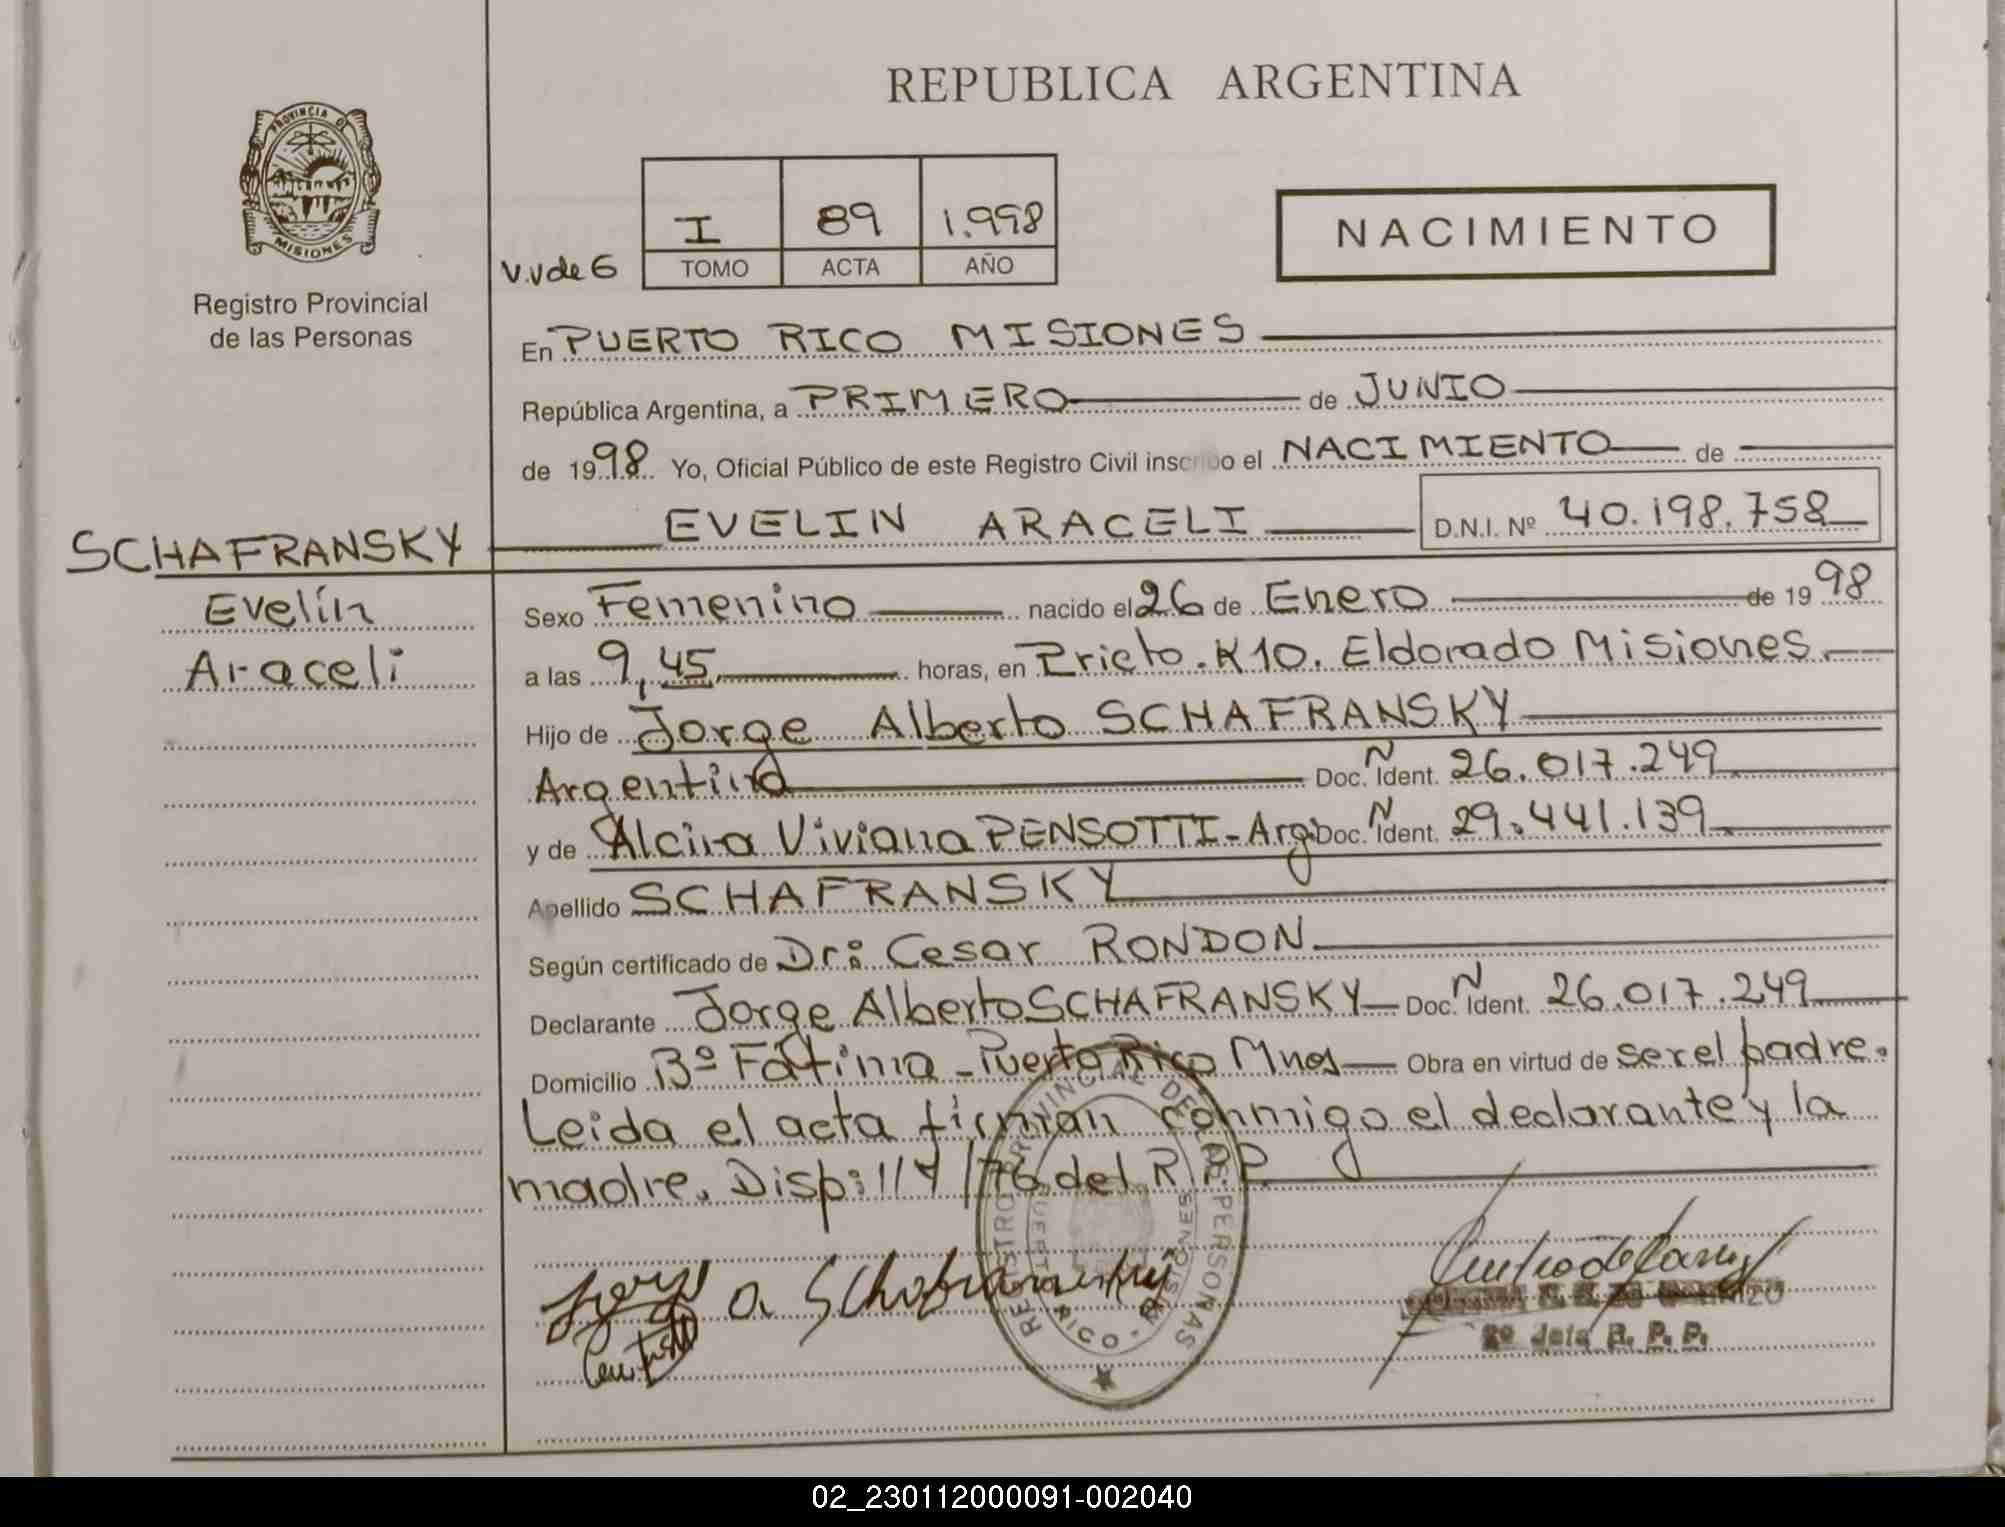 REPUBLICA ARGENTINA
PROVINCIA DE
MISIONES
Registro Provincial
de las Personas
V.V de 6
I 89 1.998
TOMO ACTA AÑO
NACIMIENTO
En PUERTO RICO MISIONES
República Argentina, a PRIMERO de JUNIO
de 1998 Yo, Oficial Público de este Registro Civil inscribo el NACIMIENTO de
EVELIN ARACELI D.N.I. Nº 40.198.758
SCHAFRANSKY
Evelín
Araceli
Sexo Femenino nacido el 26 de Enero de 1998
a las 9,45 horas, en Prieto.K10. Eldorado Misiones.
Hijo de Jorge Alberto SCHAFRANSKY
Argentino Doc. Ñ Ident. 26.017.249
y de Alcira Viviana PENSOTTI-Arg: Doc. Ñ Ident. 29.441.139
Apellido SCHAFRANSKY
Según certificado de Dr: Cesar RONDON
Declarante Jorge Alberto SCHAFRANSKY Doc. Ñ Ident. 26.017.249
Domicilio Bº Fátima - Puerto Rico Mnes Obra en virtud de ser el padre.
Leida el acta firman conmigo el declarante y la
madre. Disp: 1/4/76 del R.P.P.
REGISTRO PROVINCIAL DE LAS PERSONAS
PUERTO RICO - MISIONES
2º Jefe R. P. P.
02_230112000091-002040